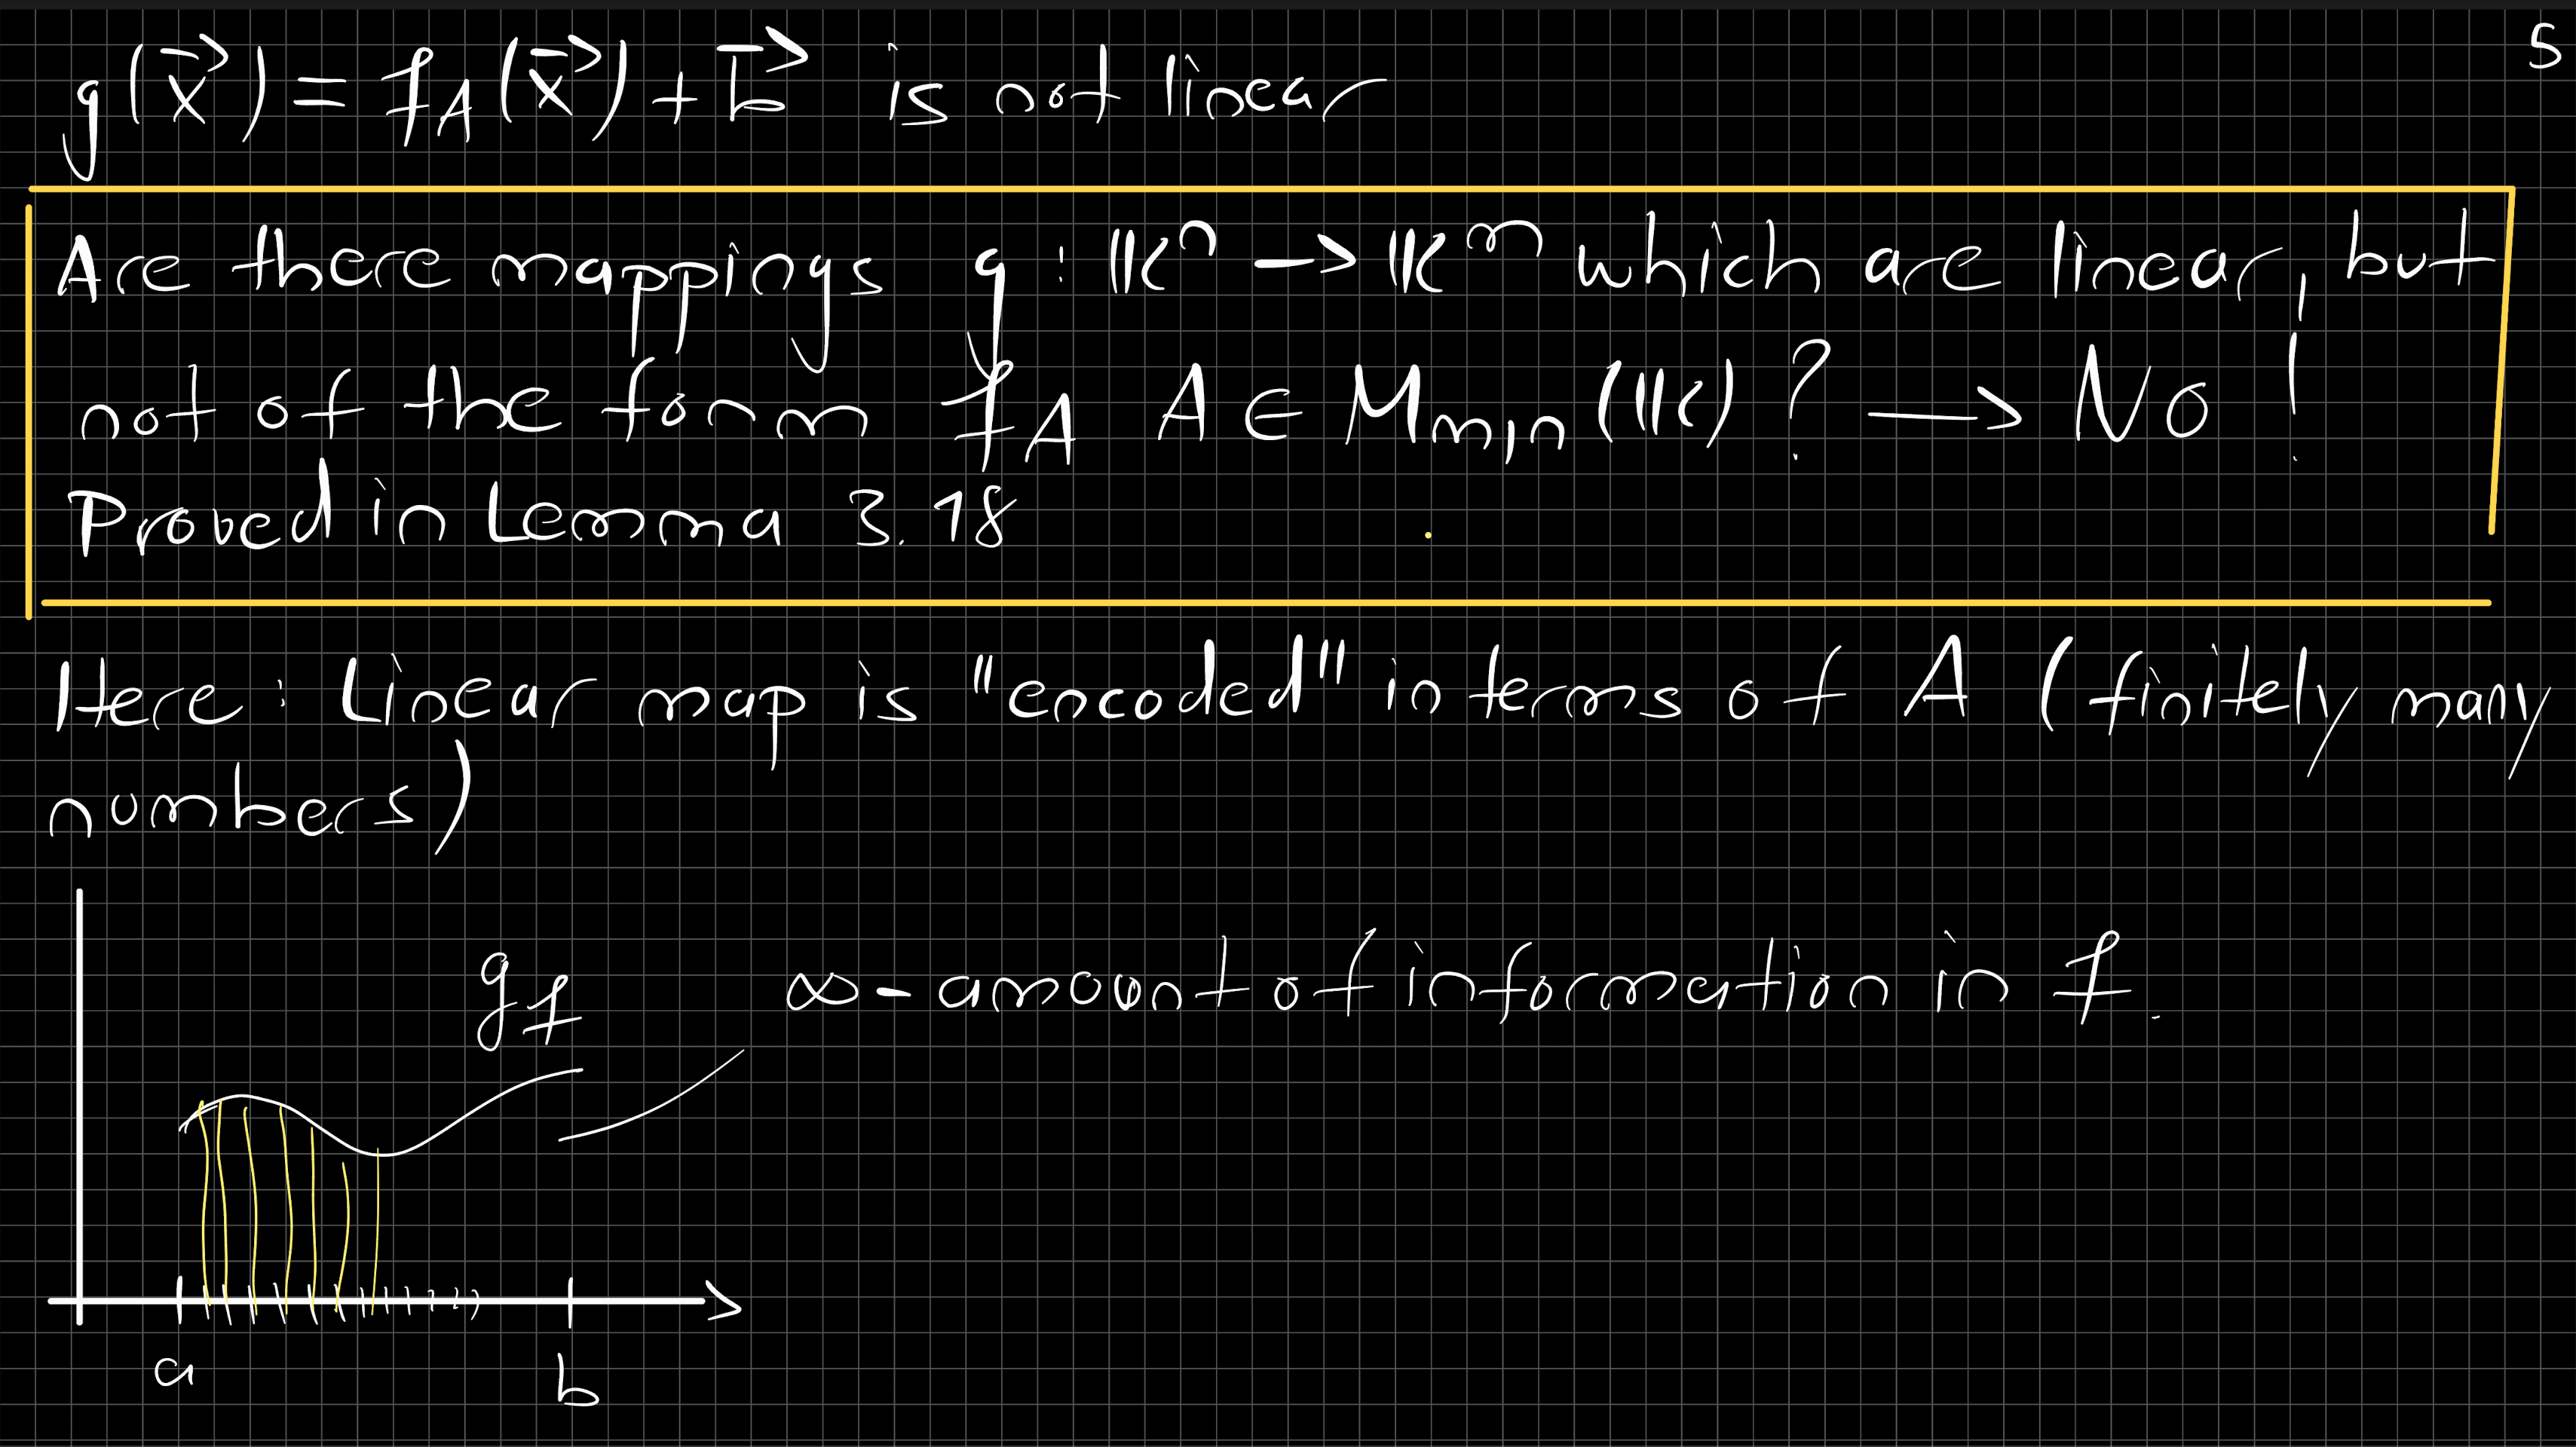 5
g(x⃗) = f_A(x⃗) + b⃗ is not linear
Are there mappings g: 𝕂ⁿ → 𝕂ᵐ which are linear, but
not of the form f_A A ∈ M_{m,n}(𝕂)? → No!
Proved in Lemma 3.18
Here: Linear map is "encoded" in terms of A (finitely many
numbers)
g_f ∞-amount of information in f.
a b